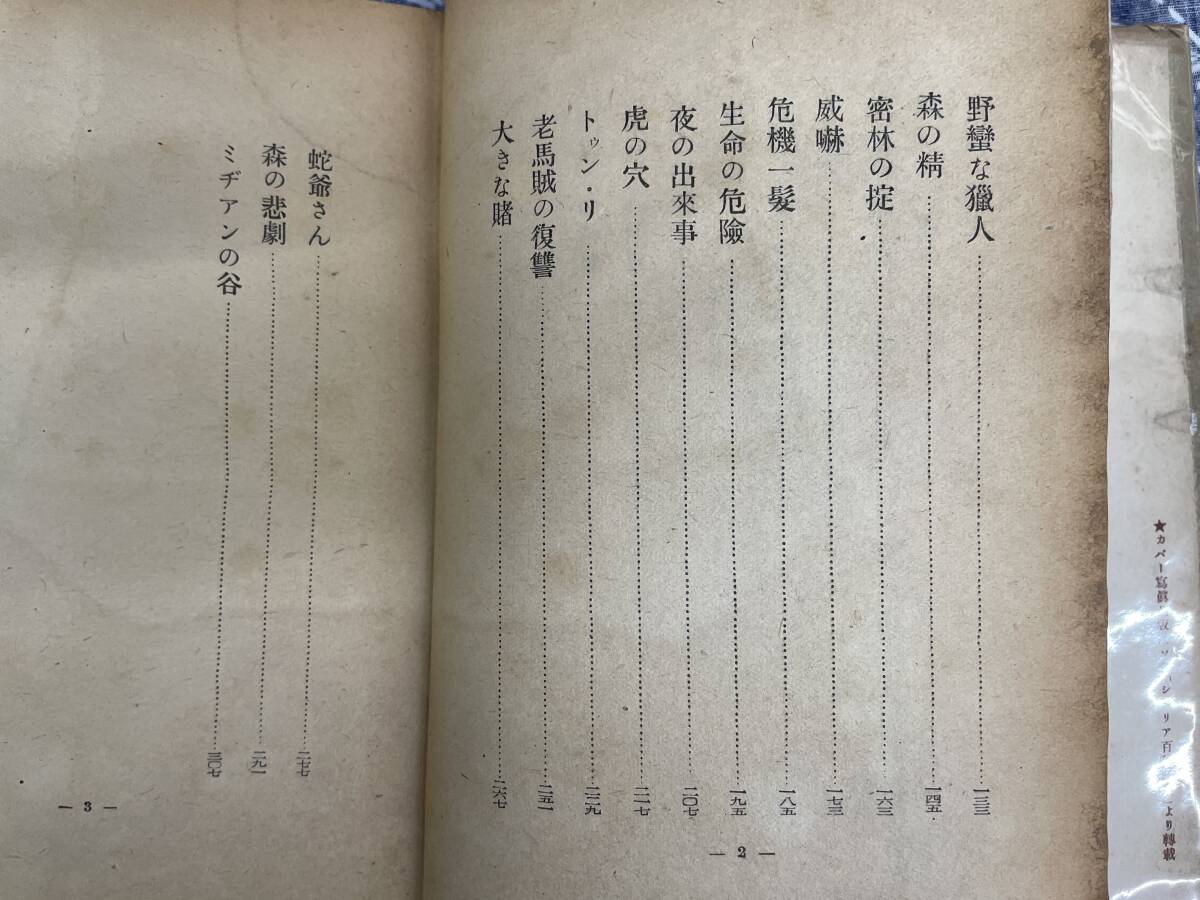 野蠻な獵人……一三三
森の精……一四五
密林の掟……一六三
威嚇……一七三
危機一髮……一八五
生命の危險……一九五
夜の出來事……二〇七
虎の穴……二一七
トゥン・リ……二二九
老馬賊の復讐……二五一
大きな賭……二六七
— 2 —
蛇爺さん……二七七
森の悲劇……二九一
ミヂアンの谷……三〇七
— 3 —
★カバー寫眞 リア百 より轉載